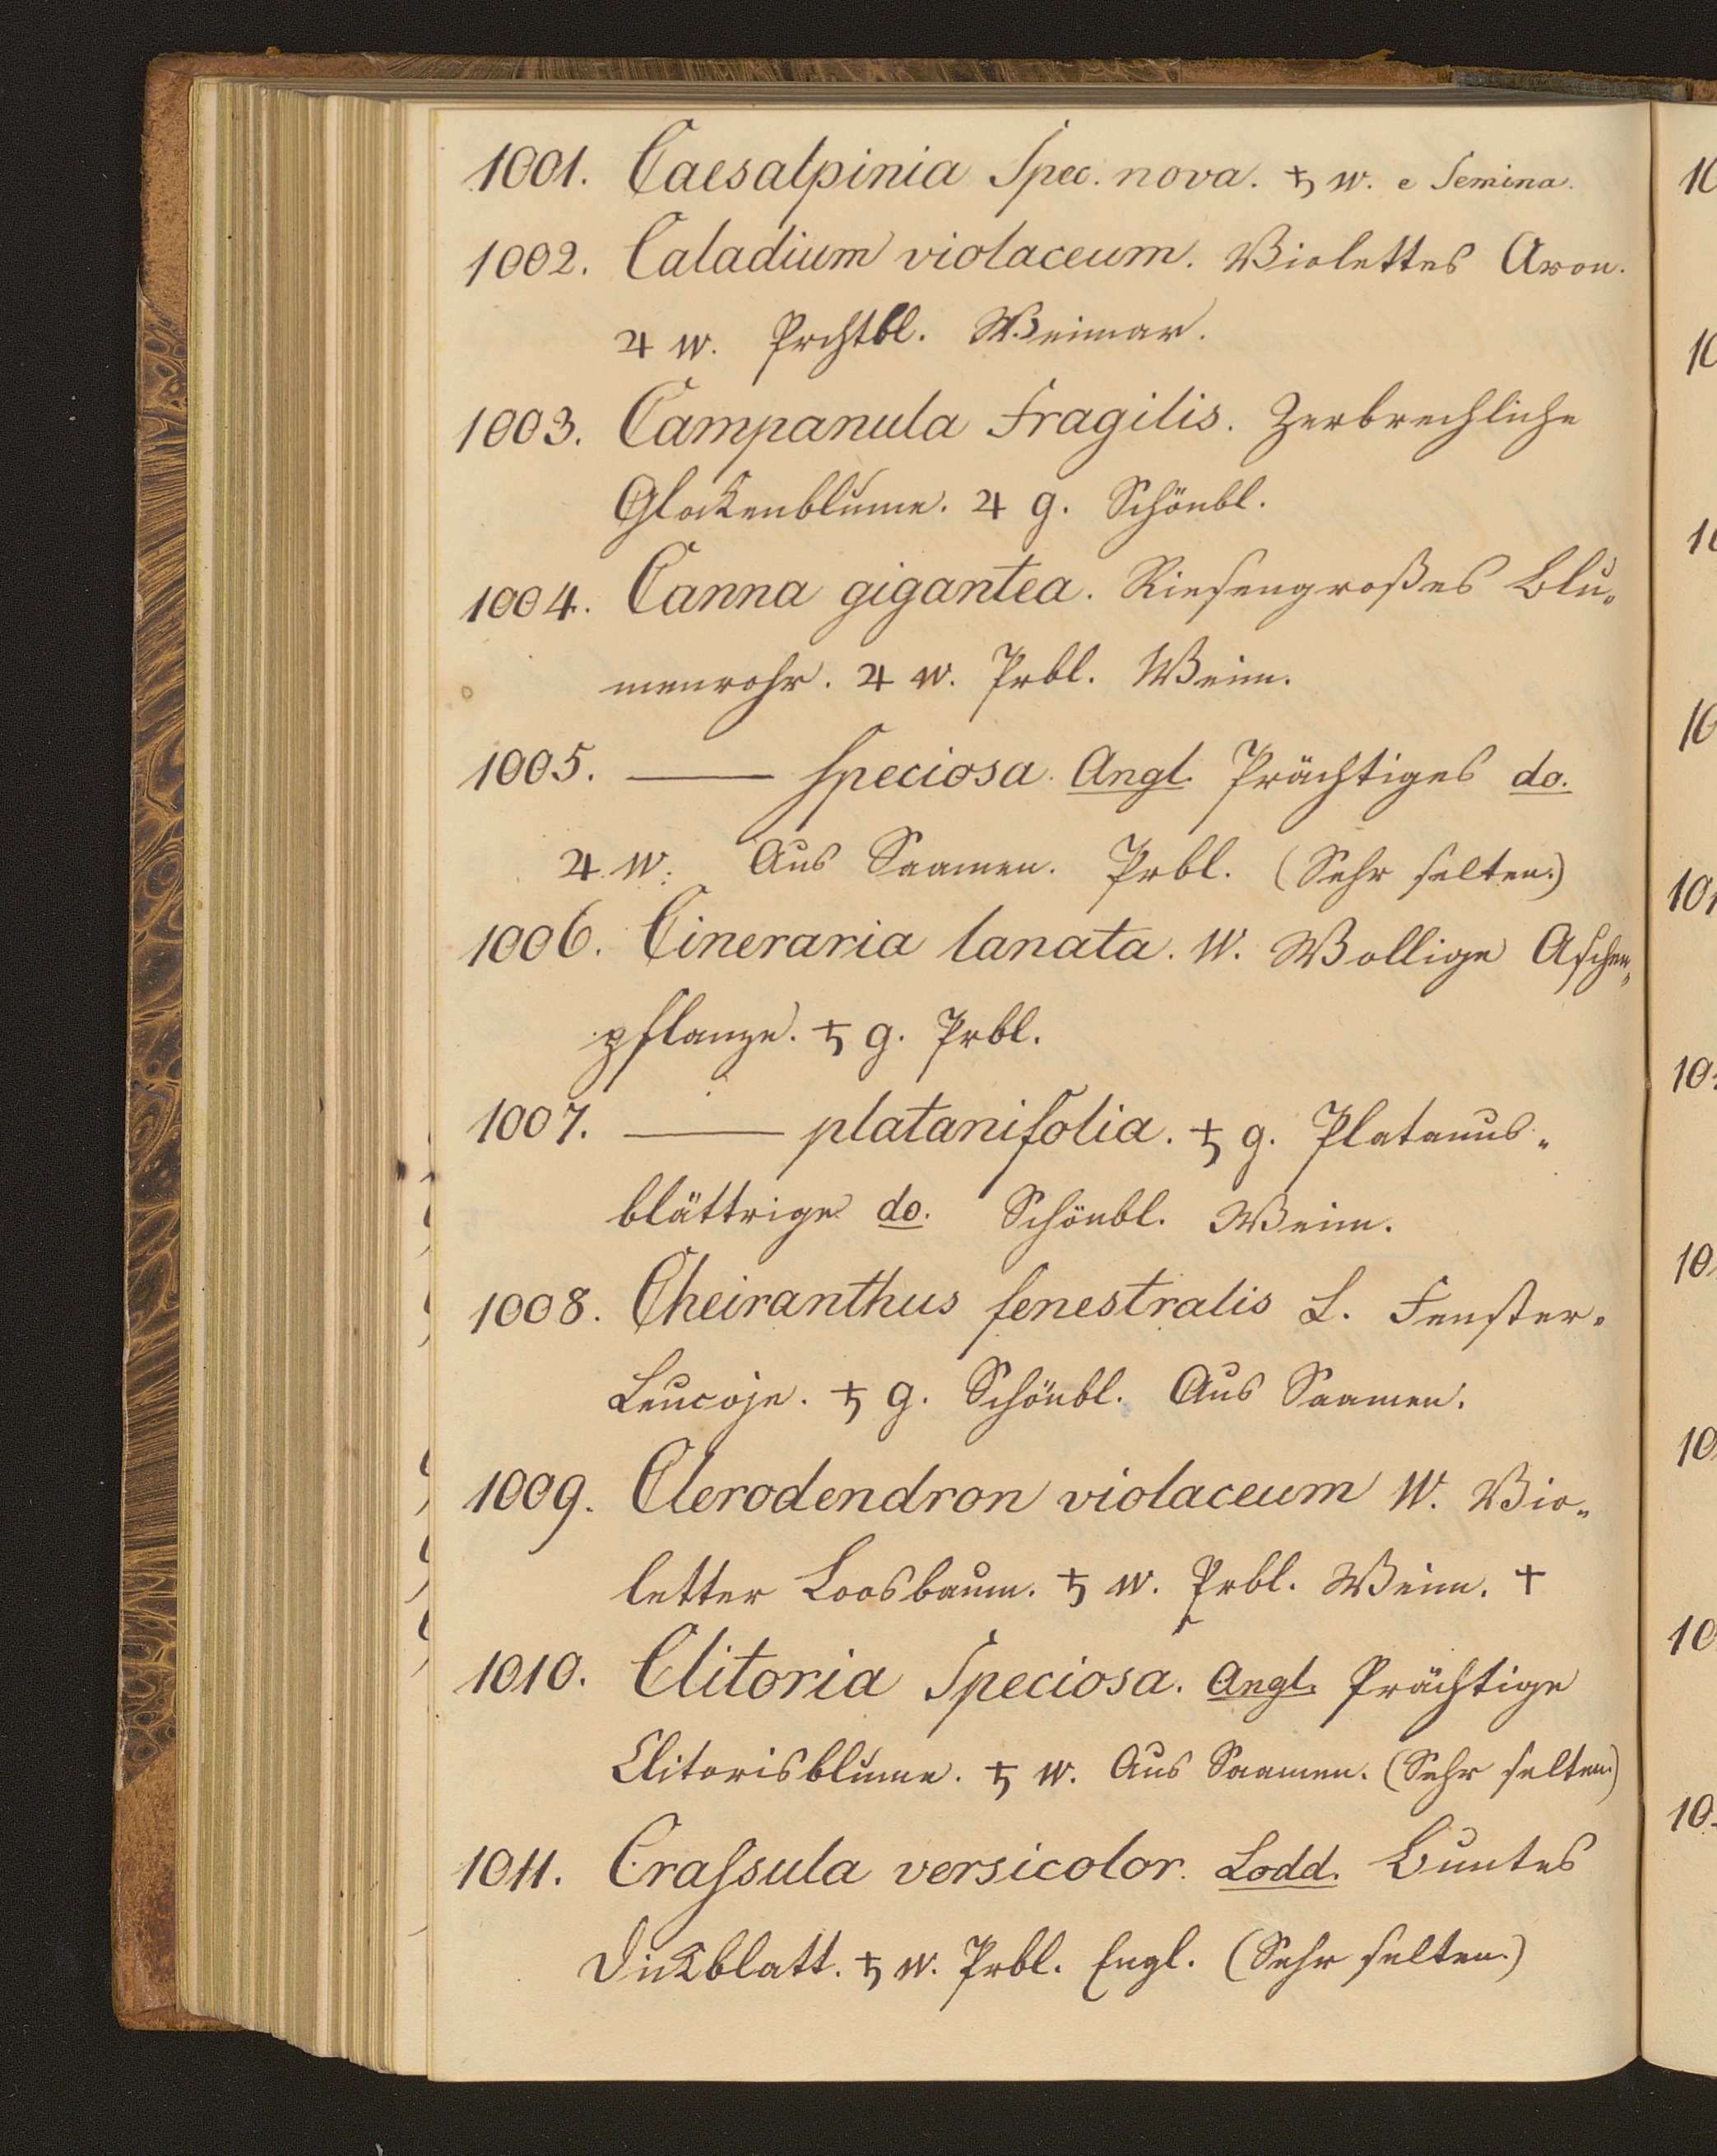 1001. Caesalpinia Spec. nova. ♄ w. e Semina.
1002. Caladium violaceum. Violettes Aron.
♃ w. Prchtbl. Weimar.
1003. Campanula fragilis. Zerbrechliche
Glockenblume. ♃ g. Schönbl.
1004. Canna gigantea. Riesengroßes Blu-
menrohr. ♃ w. Prbl. Weim.
1005. —— speciosa. Angl. Prächtiges do.
♃ w. Aus Saamen. Prbl. (Sehr selten.)
1006. Cineraria lanata. W. Wollige Aschen-
pflanze. ♄ g. Prbl.
1007. —— platanifolia. ♄ g. Platanus-
blättrige do. Schönbl. Weim.
1008. Cheiranthus fenestralis L. Fenster-
Leucoje. ♄ g. Schönbl. Aus Saamen.
1009. Clerodendron violaceum W. Vio-
letter Loosbaum. ♄ w. Prbl. Weim. +
1010. Clitoria Speciosa. Angl. Prächtige
Clitorisblume. ♄ w. Aus Saamen. (Sehr selten.)
1011. Craſsula versicolor. Lodd. Buntes
Dickblatt. ♄ w. Prbl. Engl. (Sehr selten.)